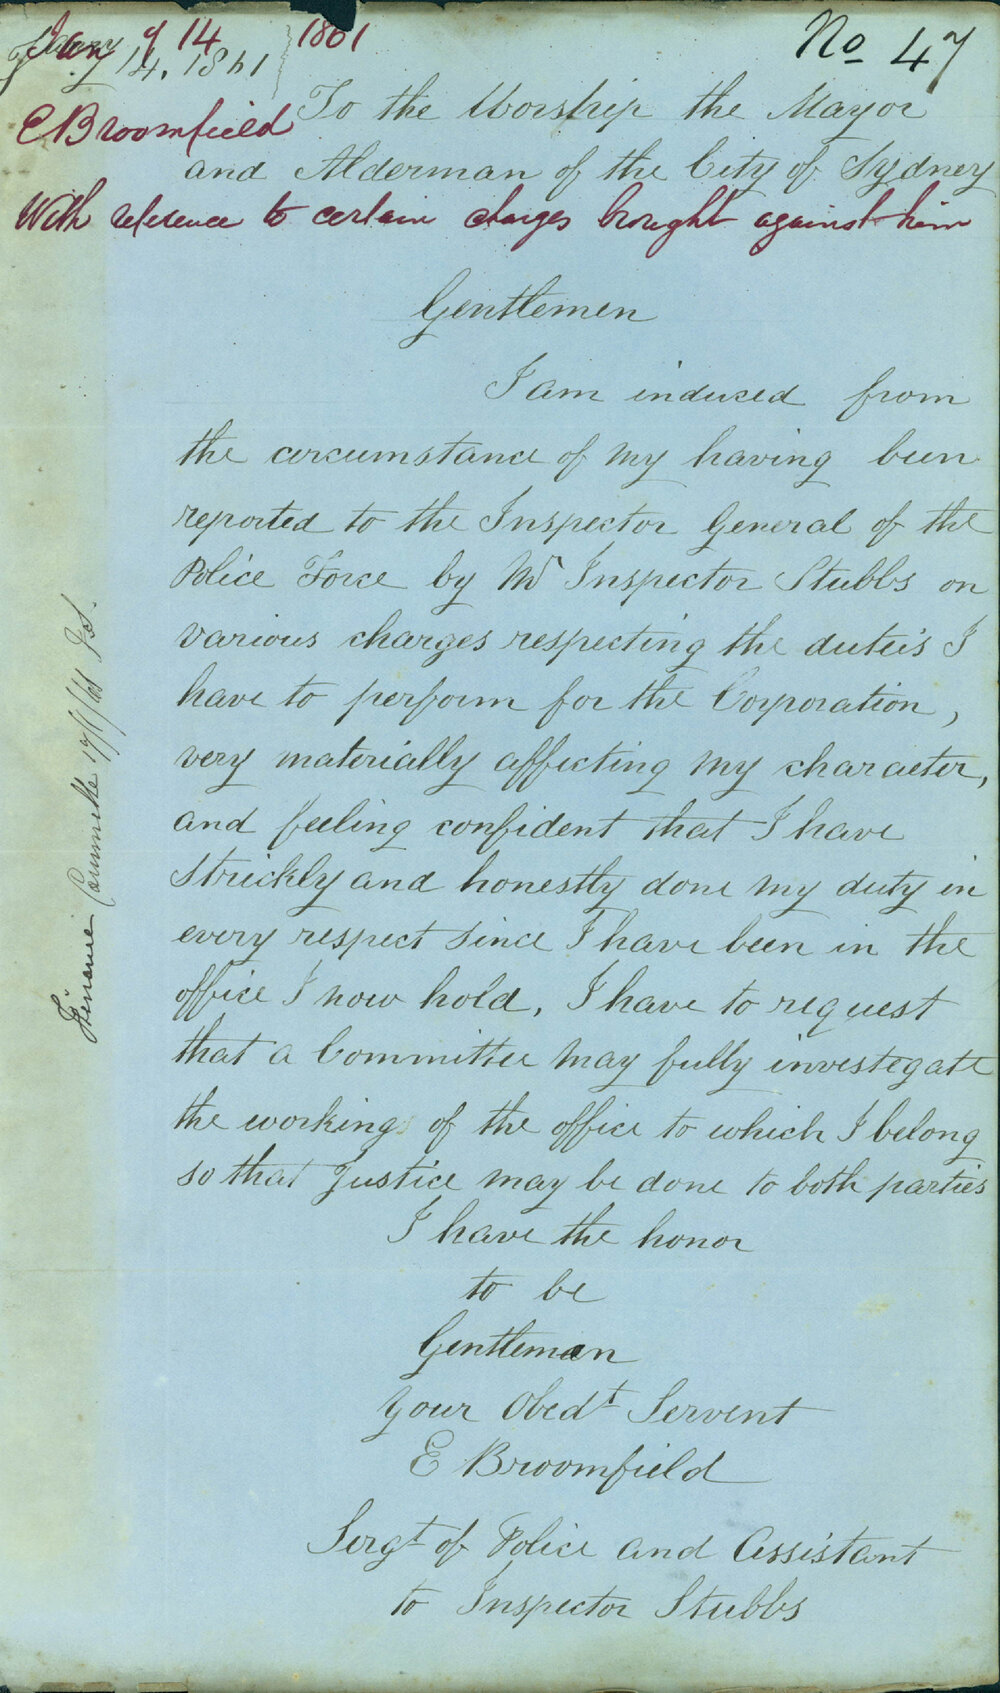 Jany 14 1861
Jany 14. 1861
No 47
E Broomfield
To the Worship the Mayor
and Alderman of the City of Sydney
With reference to certain charges brought against him
Gentlemen
I am induced from
the circumstance of my having been
reported to the Inspector General of the
Police Force by Mr Inspector Stubbs on
various charges respecting the duteis I
have to perform for the Corporation,
very materially affecting my character,
and feeling confident that I have
strickly and honestly done my duty in
every respect since I have been in the
office I now hold, I have to request
that a Committee may fully investegate
the workings of the office to which I belong
so that Justice may be done to both parties
I have the honor
to be
Gentleman
Your Obedt Servent
E Broomfield
Sergt of Police and Assistant
to Inspector Stubbs
Finance Committee 17/1/61